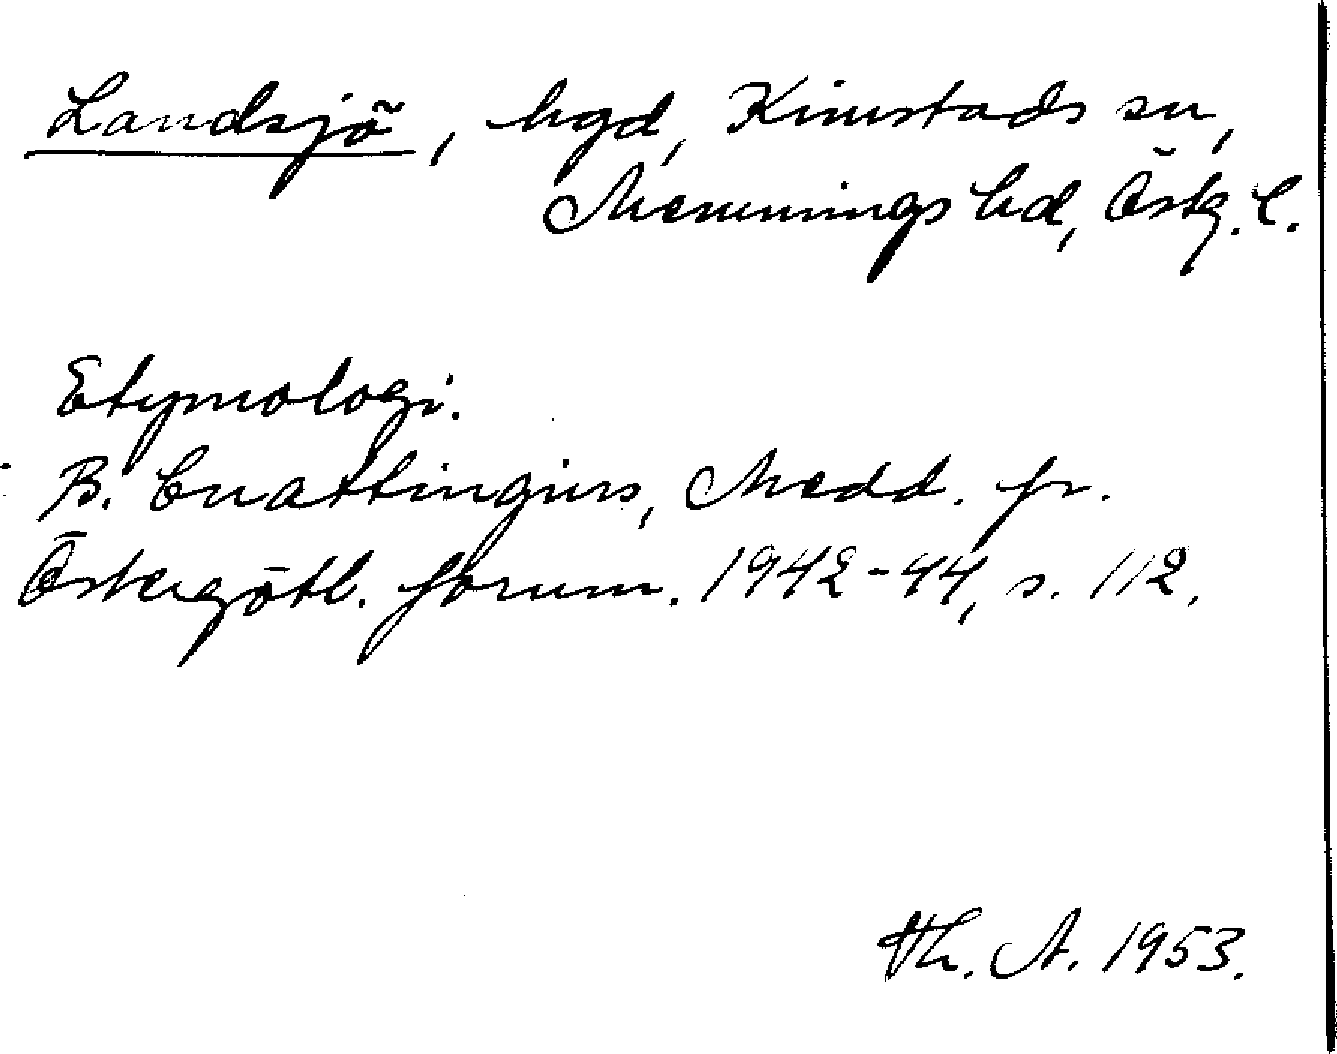 Landsjö, hgd, Kimstads sn,
Memmings hd, Östg. l.
Etymologi.
B. Cnattingius, Medd. fr.
Östergötl. fornm. 1942-44, s. 112.
Th. A. 1953.